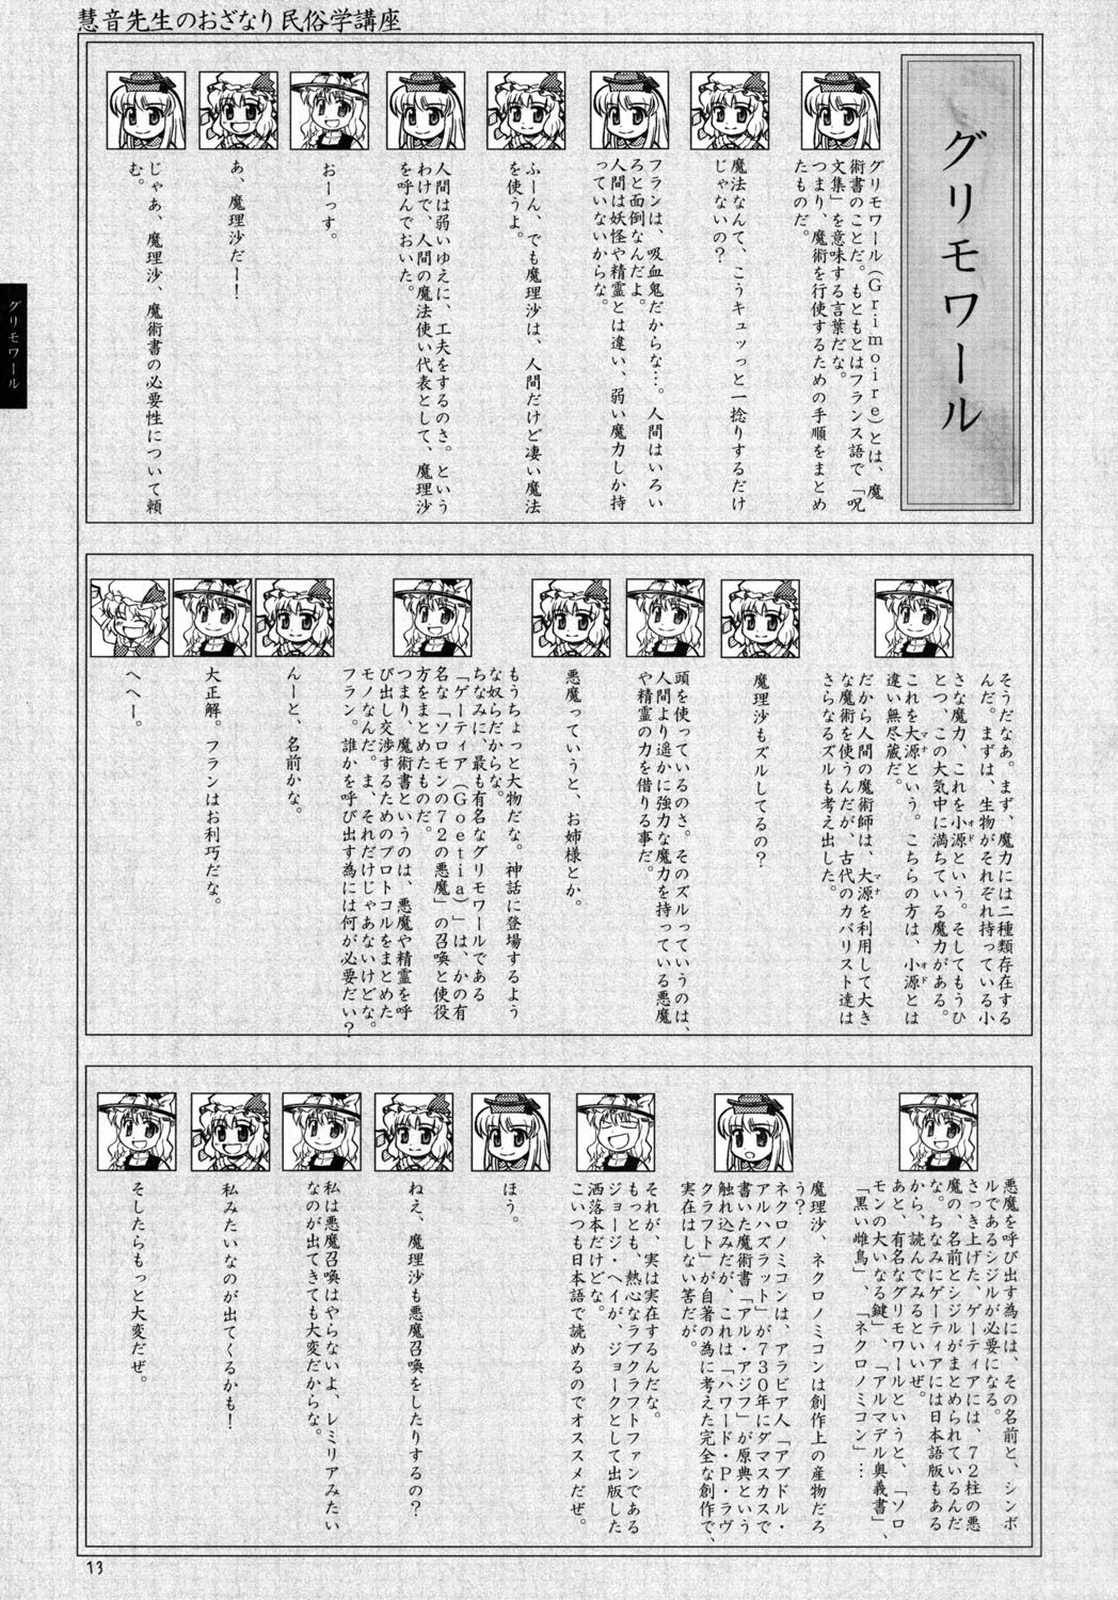 慧音先生のおざなり民俗学講座
グリモワール
グリモワール（Grimoire）とは、魔
術書のことだ。もともとはフランス語で「呪
文集」を意味する言葉だな。
つまり、魔術を行使するための手順をまとめ
たものだ。
魔法なんて、こうキュッっと一捻りするだけ
じゃないの？
フランは、吸血鬼だからな…。人間はいろい
ろと面倒なんだよ。
人間は妖怪や精霊とは違い、弱い魔力しか持
っていないからな。
ふーん、でも魔理沙は、人間だけど凄い魔法
を使うよ。
人間は弱いゆえに、工夫をするのさ。という
わけで、人間の魔法使い代表として、魔理沙
を呼んでおいた。
おーっす。
あ、魔理沙だー！
じゃあ、魔理沙、魔術書の必要性について頼
む。
グリモワール
そうだなあ。まず、魔力には二種類存在する
んだ。まずは、生物がそれぞれ持っている小
さな魔力、これを小源という。そしてもうひ
オド
とつ、この大気中に満ちている魔力がある。
これを大源という。こちらの方は、小源とは
マナ
オド
違い無尽蔵だ。
だから人間の魔術師は、大源を利用して大き
マナ
な魔術を使うんだが、古代のカバリスト達は
さらなるズルも考え出した。
魔理沙もズルしてるの？
頭を使っているのさ。そのズルっていうのは、
人間より遥かに強力な魔力を持っている悪魔
や精霊の力を借りる事だ。
悪魔っていうと、お姉様とか。
もうちょっと大物だな。神話に登場するよう
な奴らだからな。
ちなみに、最も有名なグリモワールである
「ゲーティア（Goetia）」は、かの有
名な「ソロモンの72の悪魔」の召喚と使役
方をまとめたものだ。
つまり、魔術書というのは、悪魔や精霊を呼
び出し交渉するためのプロトコルをまとめた
モノなんだ。ま、それだけじゃあないけどな。
フラン。誰かを呼び出す為には何が必要だい？
んーと、名前かな。
大正解。フランはお利巧だな。
へへー。
悪魔を呼び出す為には、その名前と、シンボ
ルであるシジルが必要になる。
さっき上げた、ゲーティアには、72柱の悪
魔の、名前とシジルがまとめられているんだ
な。ちなみにゲーティアには日本語版もある
から、読んでみるといいぜ。
あと、有名なグリモワールというと、「ソロ
モンの大いなる鍵」、「アルマデル奥義書」、
「黒い雌鳥」、「ネクロノミコン」…
魔理沙、ネクロノミコンは創作上の産物だろ
う？
ネクロノミコンは、アラビア人「アブドル・
アルハズラット」が730年にダマスカスで
書いた魔術書「アル・アジフ」が原典という
触れ込みだが、これは「ハワード・P・ラヴ
クラフト」が自著の為に考えた完全な創作で、
実在はしない筈だが。
それが、実は実在するんだな。
もっとも、熱心なラブクラフトファンである
ジョージ・ヘイが、ジョークとして出版した
洒落本だけどな。
こいつも日本語で読めるのでオススメだぜ。
ほう。
ねえ、魔理沙も悪魔召喚をしたりするの？
私は悪魔召喚はやらないよ、レミリアみたい
なのが出てきても大変だからな。
私みたいなのが出てくるかも！
そしたらもっと大変だぜ。
13